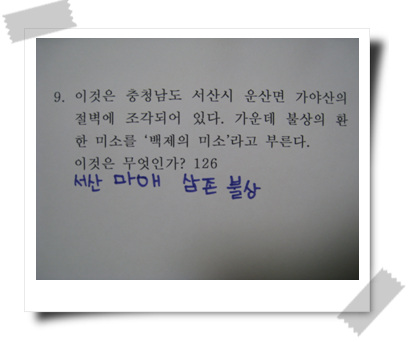 9. 이것은 충청남도 서산시 운산면 가야산의
절벽에 조각되어 있다. 가운데 불상의 환
한 미소를 ‘백제의 미소’라고 부른다.
이것은 무엇인가? 126
서산 마애 삼존 불상